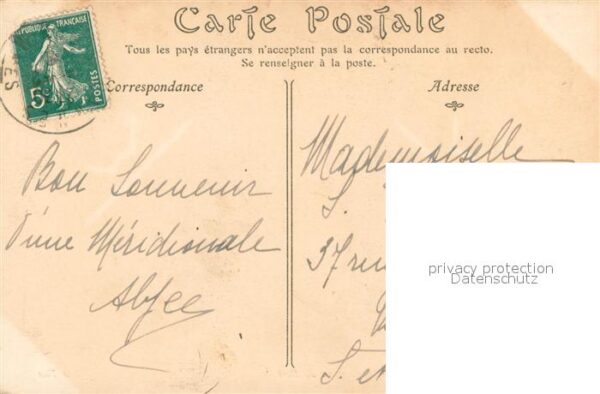 Carte Postale
Tous les pays étrangers n'acceptent pas la correspondance au recto.
Se renseigner à la poste.
REPUBLIQUE FRANÇAISE
5c
POSTES
Correspondance
Bon Souvenir
d'une Méridionale
Adresse
Mademoiselle
S.
37 rue
S. et
privacy protection
Datenschutz